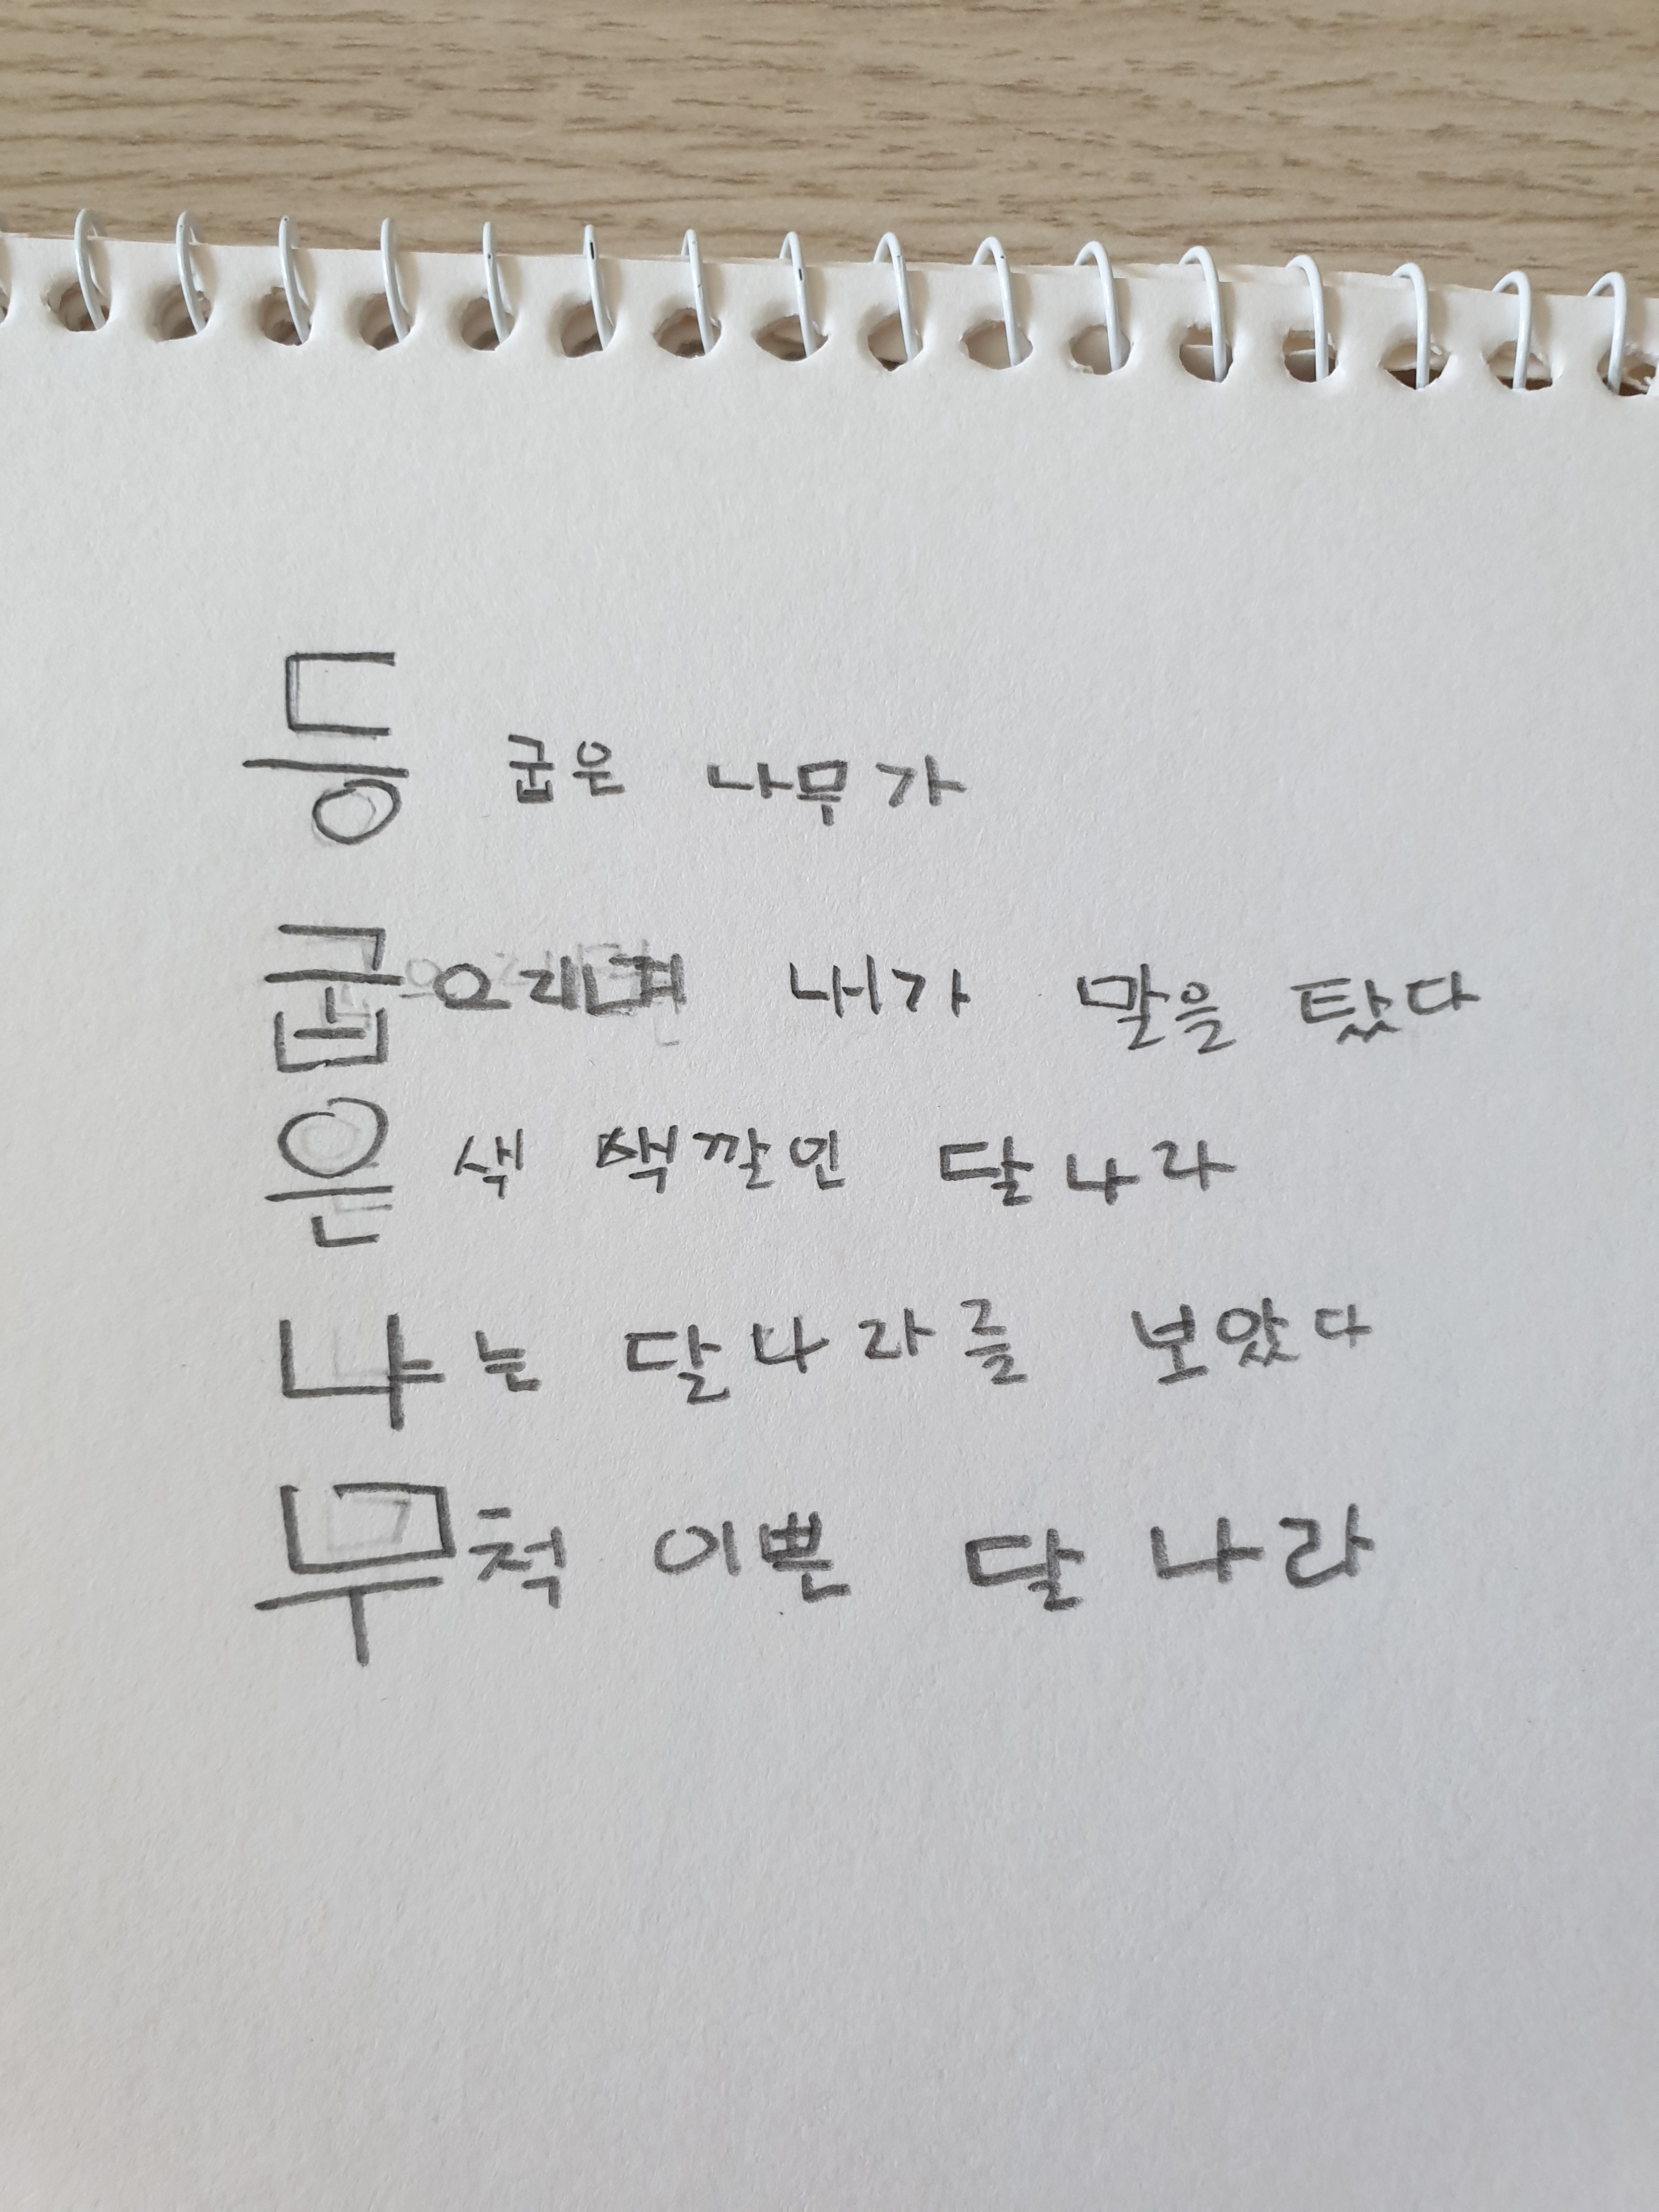 등 굽은 나무가
내가 말을 탔다
은색 색깔인 달나라
나는 달나라를 보았다
무척 이쁜 달나라